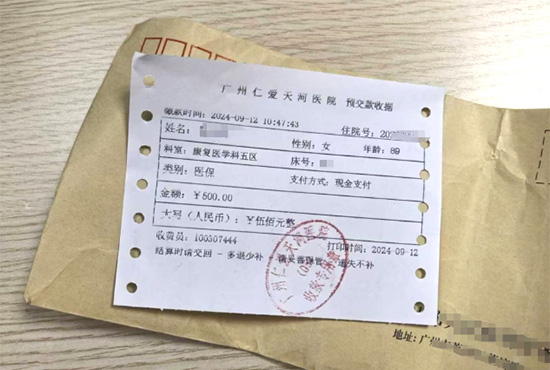 广州仁爱天河医院 预交款收据
缴款时间: 2024-09-12 10:47:43 住院号: 20
姓名: 性别: 女 年龄: 89
科室: 康复医学科五区 床号:
类别: 医保 支付方式: 现金支付
金额: ￥500.00
大写（人民币）: ￥伍佰元整
收费员: 100307444 打印时间: 2024-09-12
结算时请交回 - 多退少补 遗失不补
广州仁爱天河医院
收款专用章
地址: 广州